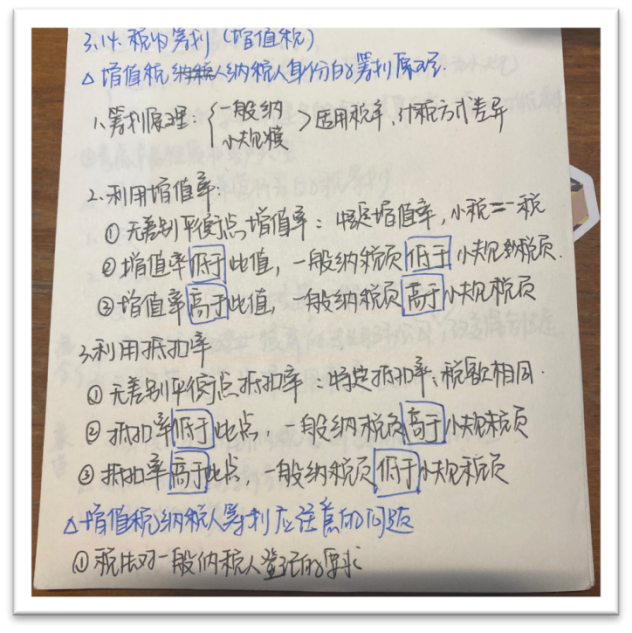 3.14. 税收筹划（增值税）
△ 增值税纳税人身份的筹划原理.
1.筹划原理: { 一般纳 小规模 } 适用税率、计税方式差异
2.利用增值率:
① 无差别平衡点增值率: 特定增值率, 小税=一税
② 增值率低于此值, 一般纳税负低于小规纳税负.
③ 增值率高于此值, 一般纳税负高于小规税负
3.利用抵扣率
① 无差别平衡点抵扣率: 特定抵扣率, 税款相同.
② 抵扣率低于此点, 一般纳税负高于小规税负
③ 抵扣率高于此点, 一般纳税负低于小规税负
△ 增值税纳税人筹划应注意的问题
① 税法对一般纳税人登记的要求